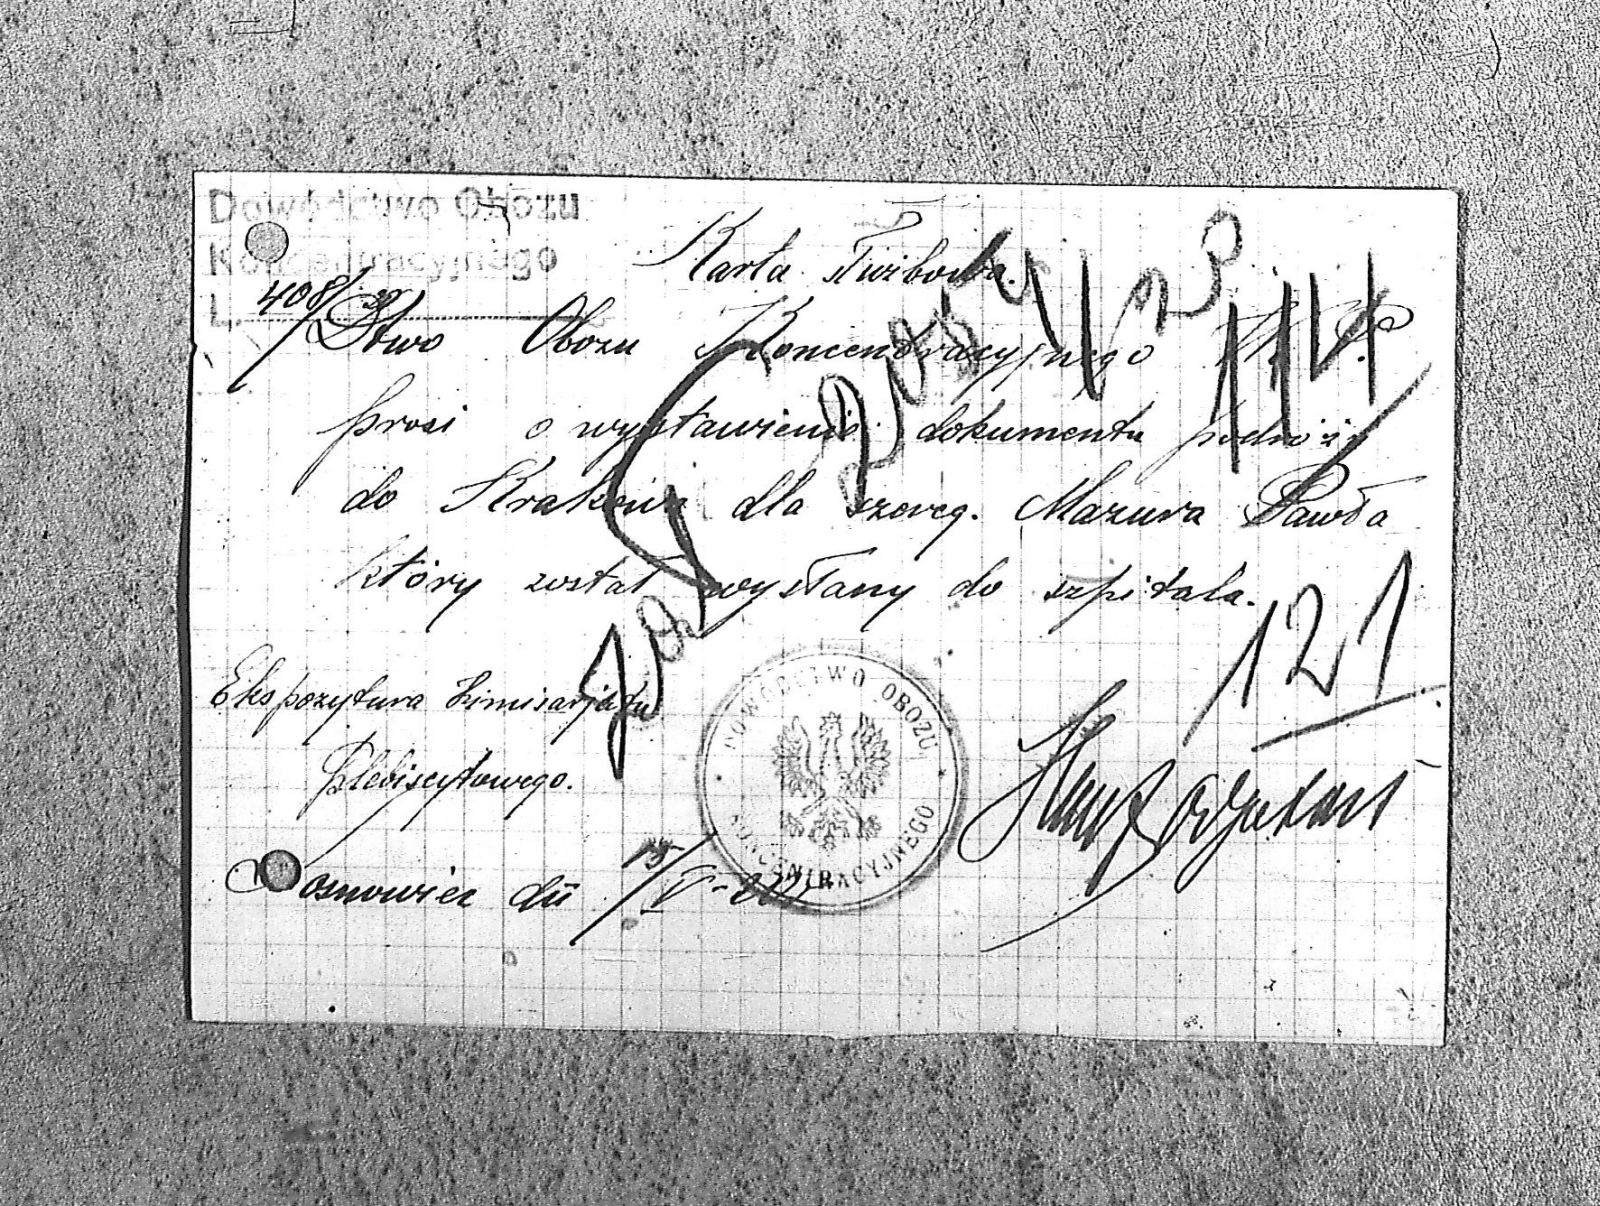 Dowództwo Obozu
Koncentracyjnego
L. 408/
Karta służbowa.
Dtwo Obozu Koncentracyjnego W. P.
prosi o wystawienie dokumentu podróży
do Krakowa dla szereg. Mazura Pawła
który został wysłany do szpitala.
121
Ekspozytura Komisarjatu
Plebiscytowego.
DOWÓDZTWO OBOZU
KONCENTRACYJNEGO
Sosnowiec dn 15/V